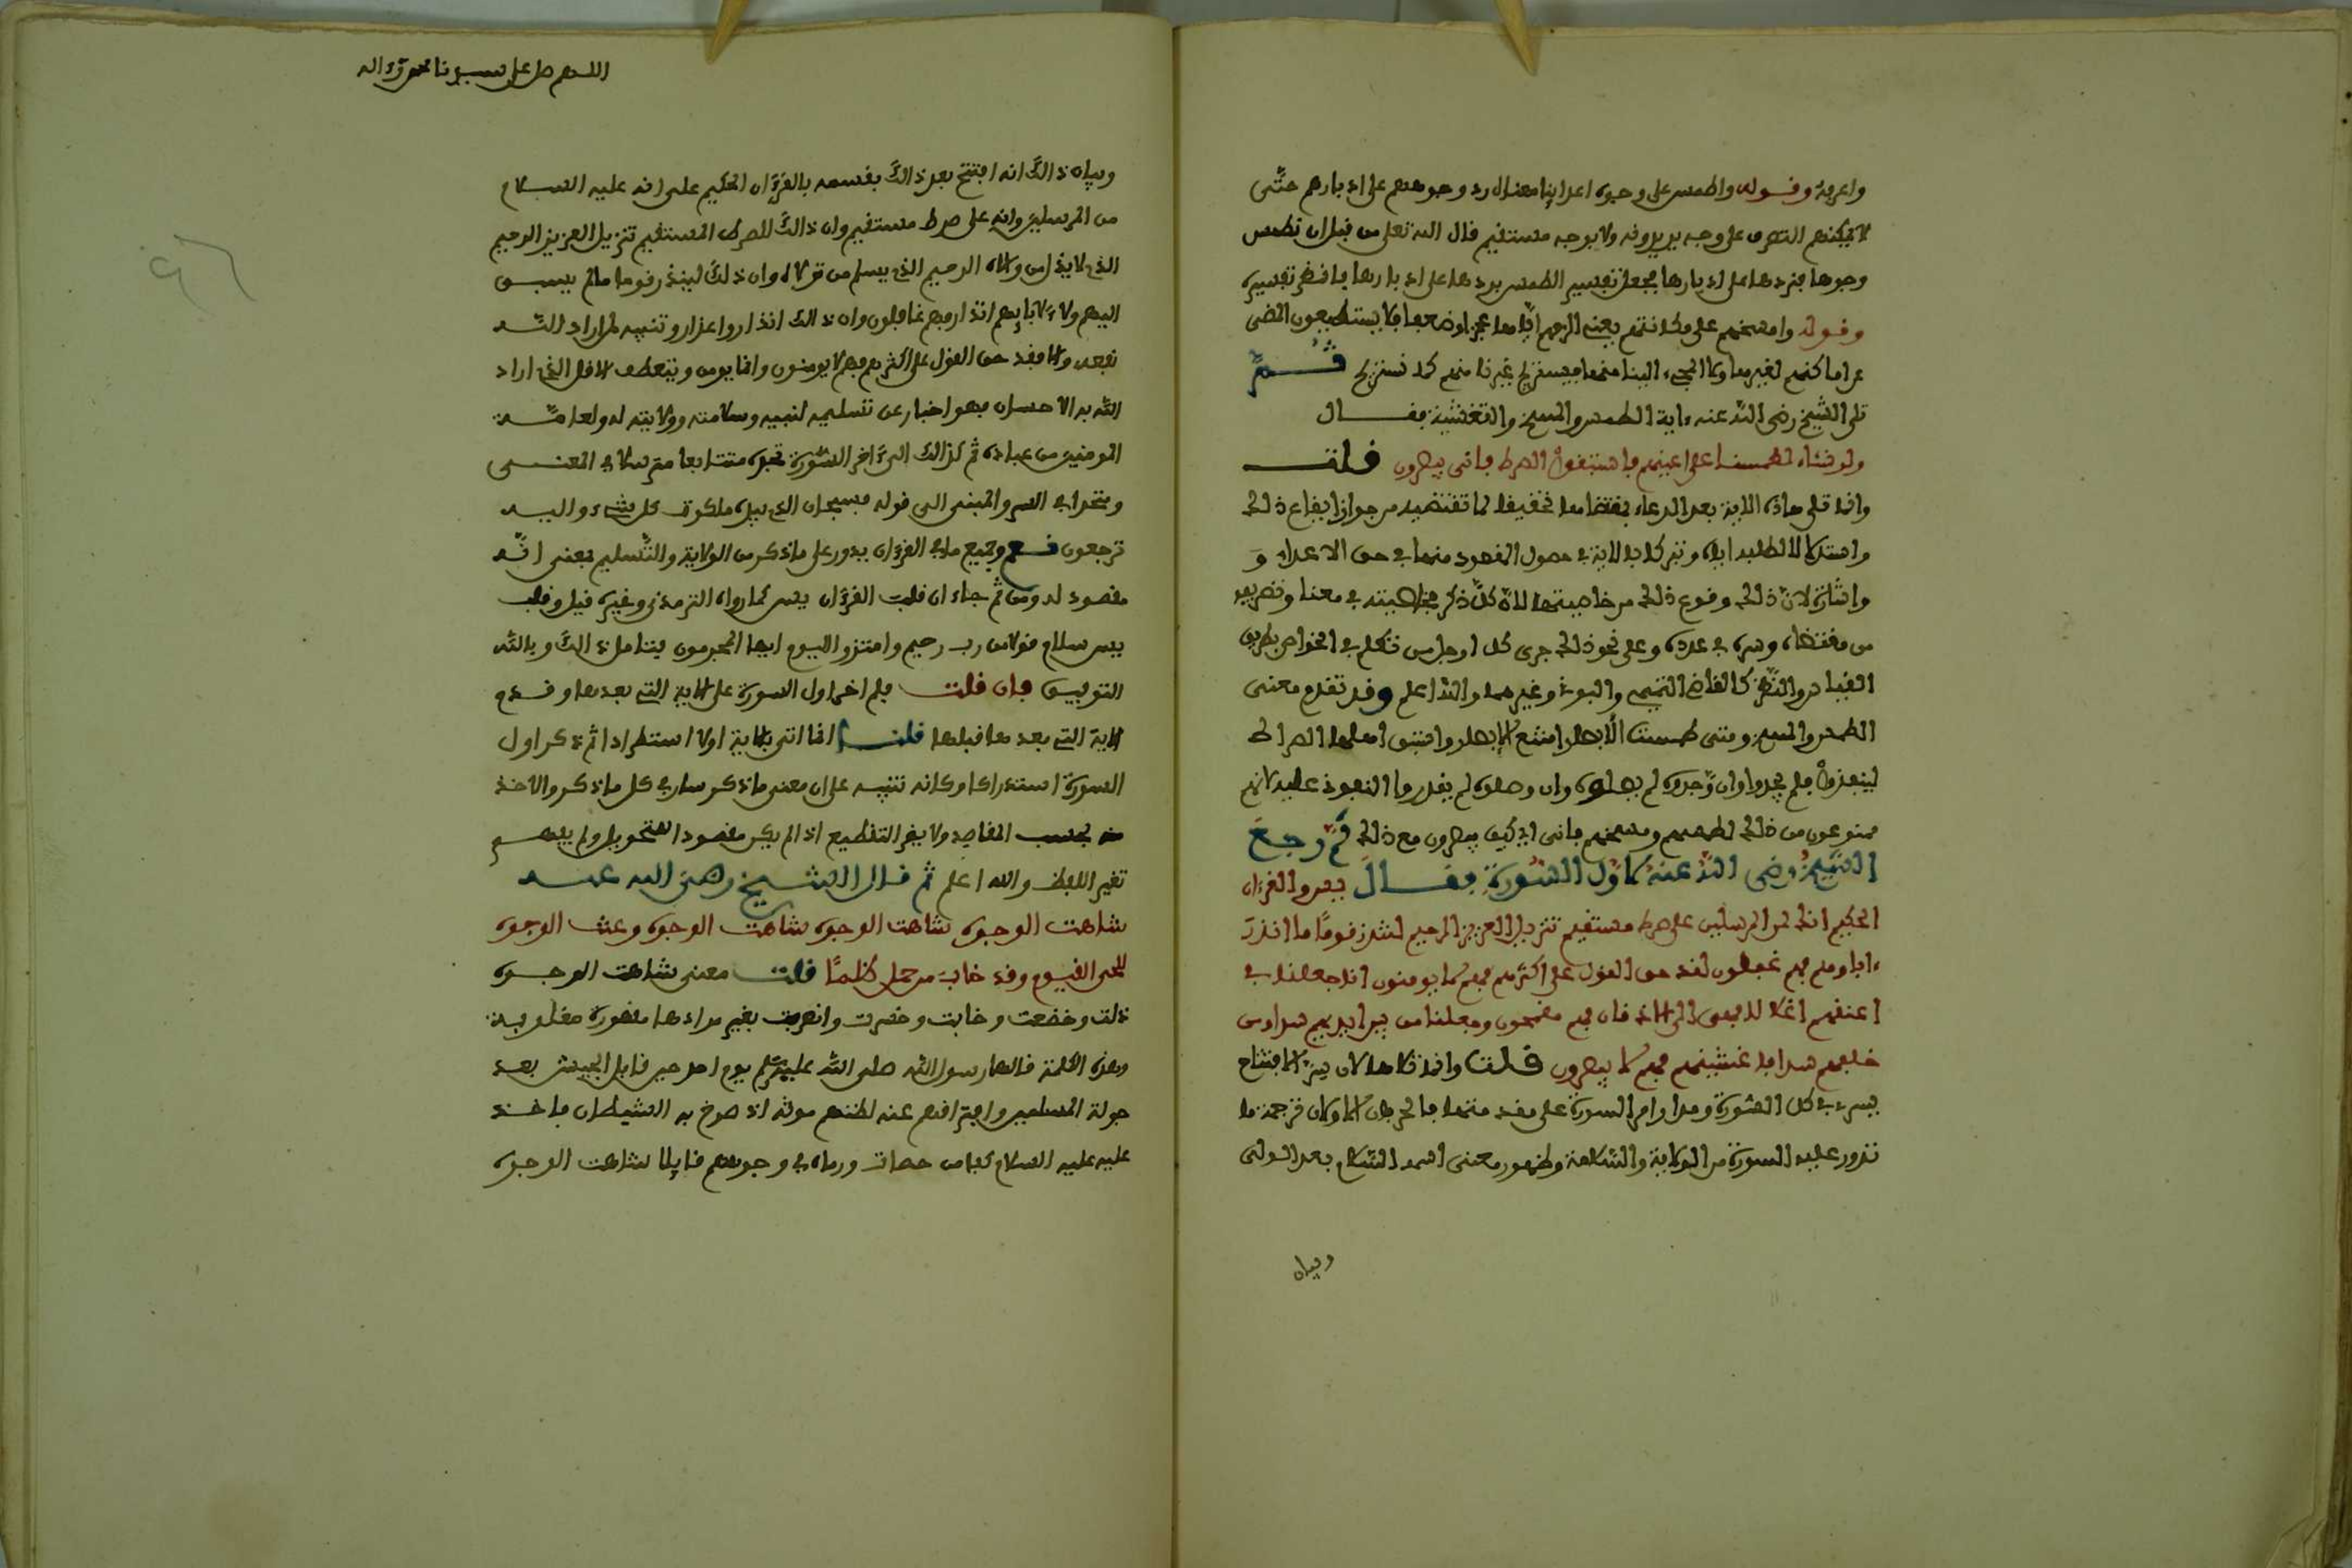 واعربة وقوله واطمس على وجوه اعدائنا معناه رد وجوههم على ادبارهم حتى
لا يمكنهم التصرف على وجه يريدونه ولا بوجه مستقيم قال الله تعلى من قبل ان نطمس
وجوها فنردها على ادبارها فجعل تفسير الطمس بردها على ادبارها
وقوله وامسخهم على مكانتهم يعني
ولا المجيء الينا
تلى الشيخ رضي الله عنه ءاية الطمس والمسخ والتغشية فقال
ولو نشاء لطمسنا على اعينهم فاستبقوا الصرط فانى يبصرون قلت
وانما تلى هاذه الاية بعد الدعاء بمقتضاها تحقيقا لما تقتضيه من جواز ايقاع ذلك
واستدلالا لطلبه اياه وتبركا بالاية في حصول المقصود منها في حق الاعداء و
واشارة لان ذلك وقوع ذلك من خاصيتها لان كل ذكر خاصيته في معناه وتصريفه
من مقتضاه وسره في عدده وعلى نحو ذلك جرى كل او جل من تكلم في الخواص بطريق
القياس والنظر كالقاضي التميمي والبوني وغيرهما والله اعلم وقد تقدم معنى
الطمس والمسخ ومتى طمست الابصار امتنع الابصار
لينفذوا فلم يجدوا وان وجدوه لم يصلوه وان وصلوه لم يقدروا النفوذ عليه لانهم
ممنوعون من ذلك لطمسهم ومسخهم فانى اي كيف يبصرون مع ذلك ثم رجع
الشيخ رضي الله عنه لاول السورة فقال يس والقرءان
الحكيم انك لمن المرسلين على صرط مستقيم تنزيل العزيز الرحيم لتنذر قوما ما انذر
ءاباوهم فهم غفلون لقد حق القول على اكثرهم فهم لا يومنون انا جعلنا في
اعنقهم اغللا فهي الى الاذقان فهم مقمحون وجعلنا من بين ايديهم سدا ومن
خلفهم سدا فاغشينهم فهم لا يبصرون قلت وانما تلاها لان سر الافتتاح
بيس في كل السورة ومدار امر السورة على مقدمتها
تدور عليه السورة من الولاية والسلامة وظهور معنى اسمه السلام بعد الولي
وبيان
اللهم صل على سيدنا محمد وءاله
وبيان ذالك انه افتتح بعد ذالك بقسمه بالقرءان الحكيم على انه عليه السلام
من المرسلين وانه على صرط مستقيم وان ذالك للصرط المستقيم تنزيل العزيز الرحيم
الذي لا يذل من والاه الرحيم الذي يسلم من تولاه وان ذلك لينذر قوما ما لم يسبق
اليهم ولا لابايهم انذار فهم غافلون وان ذالك انذار واعذار وتنبيه لمن اراد الله
نفعه والا فقد حق القول على اكثرهم فهم لا يومنون وانما يومن ويتعظ الاقل الذي اراد
الله به الاحسان فهو اخبار عن تسليمه لنبيه وسلامته وولايته له ولعامة
المومنين من عباده ثم كذالك الى ءاخر السورة تجده متتابعا مترسلا في المعنى
ومتحدا في السر والمبنى الى قوله فسبحان الذي بيده ملكوت كل شيء واليه
ترجعون نعم وجميع ما في القرءان يدور على ما ذكر من الولاية والتسليم بمعنى انه
مقصود له ومن ثم جاء ان قلب القرءان يس كما رواه الترمذي وغيره قيل وقلب
يس سلام قولا من رب رحيم وامتزوا اليوم ايها المجرمون فتامل ذالك وبالله
التوفيق فان قلت فلم اخر اول السورة على الاية التي بعدها وقدم
الاية التي بعدها قبلها قلت انما اتى بالاية اولا استطرادا ثم ذكر اول
السورة استدراكا وكانه تنبيه على ان معنى ما ذكر سار في كل ما ذكر والاخذ
منه بحسب المقاصد ولا يضر التقطيع اذا لم يكن مقصودا لتحويل ولم يفهم
تغير اللفظ والله اعلم ثم قال الشيخ رضي الله عنه
شاهت الوجوه شاهت الوجوه شاهت الوجوه وعنت الوجوه
للحي القيوم وقد خاب من حمل ظلما قلت معنى شاهت الوجوه
ذلت وخضعت وخابت وخسرت وانصرفت بغير مرادها مقهورة مغلوبة
وهذه الكلمة قالها رسول الله صلى الله عليه وسلم يوم احد حين قابل الجيش بعد
جولة المسلمين وافتراقهم عنه لظنهم موته اذ صرخ به الشيطان فاخذ
عليه عليه السلام كفا من حصاة ورماه في وجوههم قايلا شاهت الوجوه